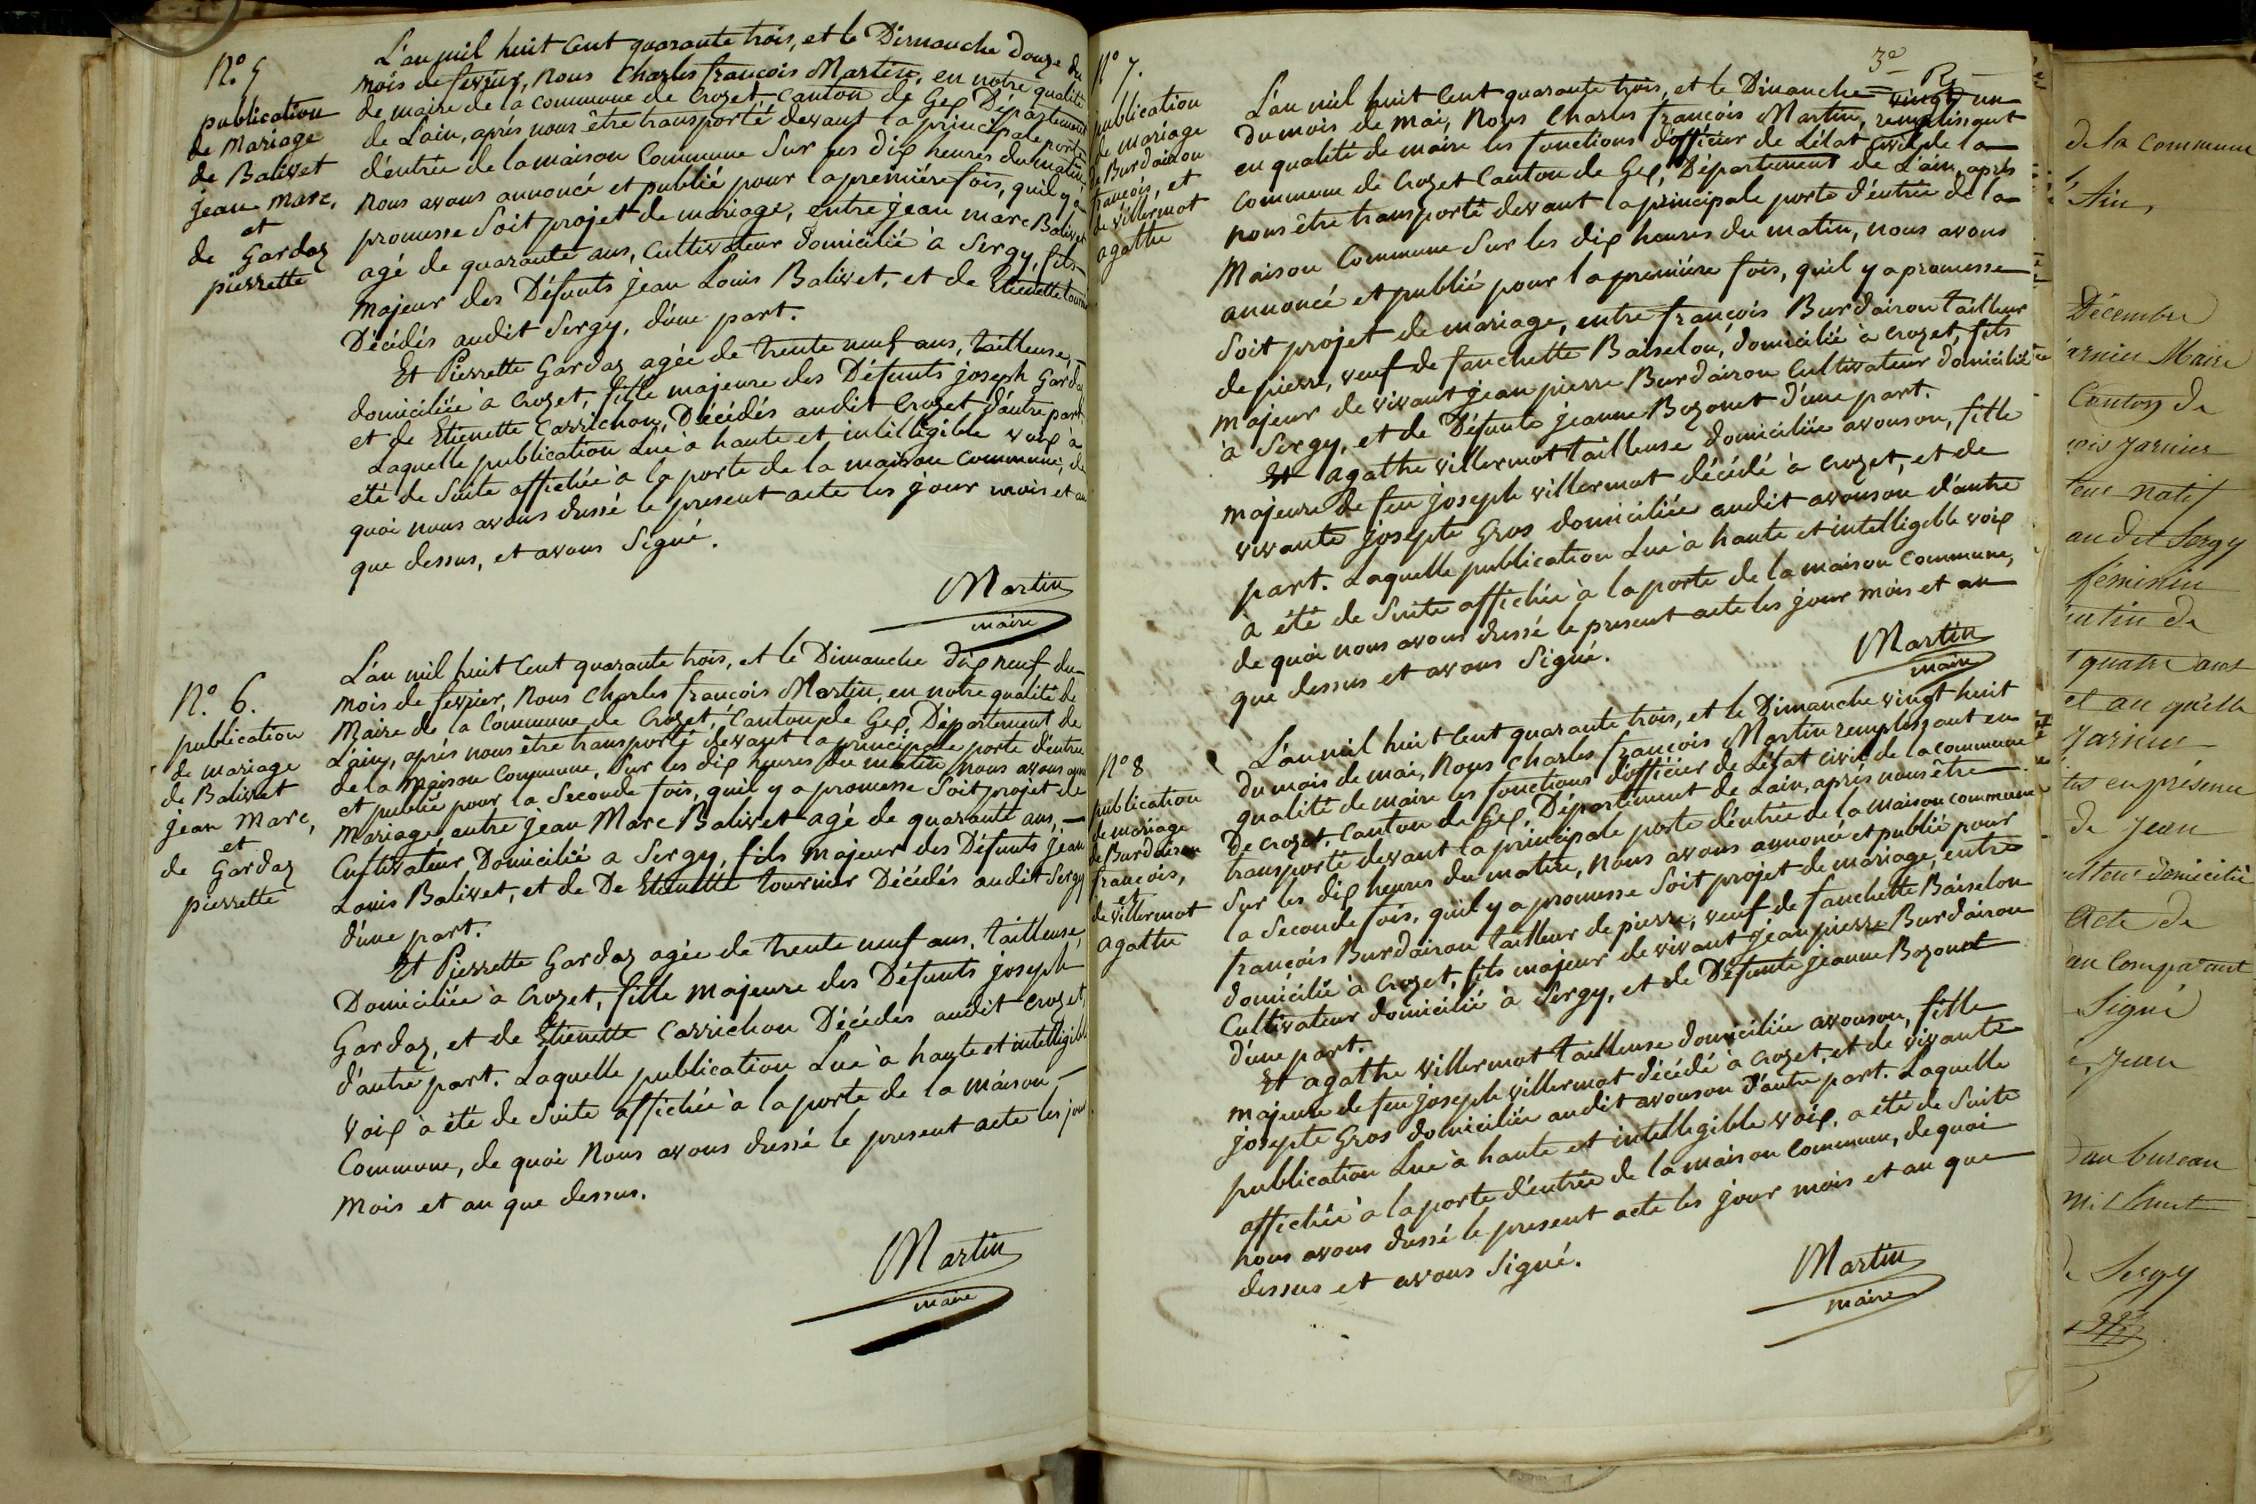 N.° 5
publication
de Mariage
de Balivet
jean marc,
et
de Gardaz
pierrette
L'an mil huit Cent quarante trois, et le Dimanche Douze du
mois de fevrier, nous Charles françois Martin, en notre qualité
de maire de la commune de Crozet canton de Gex Département
de Lain, après nous être transporté devant la principale porte
d'entrée de la maison Commune Sur les dix heures du matin,
nous avons annoncé et publié pour la première fois, qu'il y a
promesse Soit projet de mariage, entre jean marc Balivet
agé de quarante ans, Cultivateur domicilié à Sergy, fils
majeur des Défunts jean Louis Balivet, et de Etienette Tournier
Décédés audit Sergy, d'une part.
Et Pierrette Gardaz agée de trente neuf ans, tailleuse,
domiciliée à Crozet, fille majeure des Défunts joseph Gardaz
et de Etienette Carrichon, Décédés audit Crozet d'autre part.
Laquelle publication Lue à haute et intelligible voix à
été de Suite affichée à la porte de la maison commune, de
quoi nous avons dressé le present acte les jour mois et an
que dessus, et avons Signé.
Martin
maire
N.° 6.
publication
de mariage
de Balivet
jean Marc,
et
de Gardaz
pierrette
L'an mil huit Cent quarante trois, et le Dimanche dix neuf du
mois de fevrier, Nous Charles françois Martin, en notre qualité de
Maire de la Commune de Crozet, Canton de Gex, Département de
L'ain, après nous être transporté devant la principale porte d'entrée
de la Maison Commune, Sur les dix heures du matin, nous avons
et publié pour la Seconde fois, qu'il y a promesse Soit projet de
Mariage, entre jean Marc Balivet agé de quarante ans, —
Cultivateur Domicilié a Sergy, fils majeur des Défunts jean
Louis Balivet, et de De Etienette Tournier Décédés audit Sergy
d'une part.
Et Pierrette Gardaz agée de trente neuf ans, tailleuse,
Domiciliée à Crozet, fille majeure des Défunts joseph
Gardaz, et de Etienette Carrichon Décédés audit Crozet,
d'autre part. Laquelle publication Lue à haute et intelligible
voix à été de Suite affichée à la porte de la maison —
Commune, de quoi Nous avons dressé le present acte les jour
mois et an que dessus.
Martin
maire
3e
N° 7.
publication
de mariage
de Burdairon
françois, et
de villermot
agathe
L'an mil huit Cent quarante trois, et le Dimanche vingt un
du mois de mai, Nous Charles françois Martin, remplissant
en qualité de maire les fonctions d'officier de L'état civil de la
commune de Crozet Canton de Gex, Département de L'ain, après
nous être transporté devant la principale porte d'entrée de la
Maison Commune Sur les dix heures du matin, nous avons
annoncé et publié pour la première fois, qu'il y a promesse
Soit projet de mariage, entre françois Burdairon tailleur
de pierre, veuf de fanchette Baiselon, domicilié à Crozet, fils
majeur de vivant jean pierre Burdairon Cultivateur domicilié
à Sergy, et de Défunte jeanne Bozonet d'une part.
Et agathe villermot tailleuse domiciliée avouson, fille
majeure de feu joseph villermot décédé à Crozet, et de
vivante josepte Gros domiciliée audit avouson d'autre
part. Laquelle publication Lue à haute et intelligible voix
à été de Suite affichée à la porte de la maison commune,
de quoi nous avons dressé le present acte les jour mois et an
que dessus et avons Signé.
Martin
maire
N° 8
publication
de mariage
de Burdairon
françois,
et
de villermot
agathe
L'an mil huit Cent quarante trois, et le Dimanche vingt huit
du mois de mai, Nous Charles françois Martin remplissant en
qualité de maire les fonctions d'officier de L'état civil de la commune
de Crozet, Canton de Gex, Département de Lain, après nous être
transporté devant la principale porte d'entrée de la maison commune
Sur les dix heures du matin, nous avons annoncé et publié pour
la Seconde fois, qu'il y a promesse Soit projet de mariage, entre
françois Burdairon tailleur de pierre, veuf de fanchette Baiselon
domicilié à Crozet, fils majeur de vivant jean pierre Burdairon
Cultivateur domicilié à Sergy, et de Défunte jeanne Bozonet
d'une part.
Et agathe villermot tailleuse domiciliée avouson, fille
majeure de feu joseph villermot décédé à Crozet, et de vivante
josepte Gros domiciliée audit avouson d'autre part. Laquelle
publication Lue à haute et intelligible voix, a été de Suite
affichée à la porte d'entrée de la maison commune, de quoi
nous avons dressé le present acte les jour mois et an que
dessus et avons Signé.
Martin
maire
de la Commune
Ain,
Décembre
Maire
Canton de
natif
audit Sergy
féminin
de
quatre ans
et an qu'elle
en présence
de Jean
domicilié
Acte de
Comparant
Signé
Jean
au bureau
mil huit
Sergy